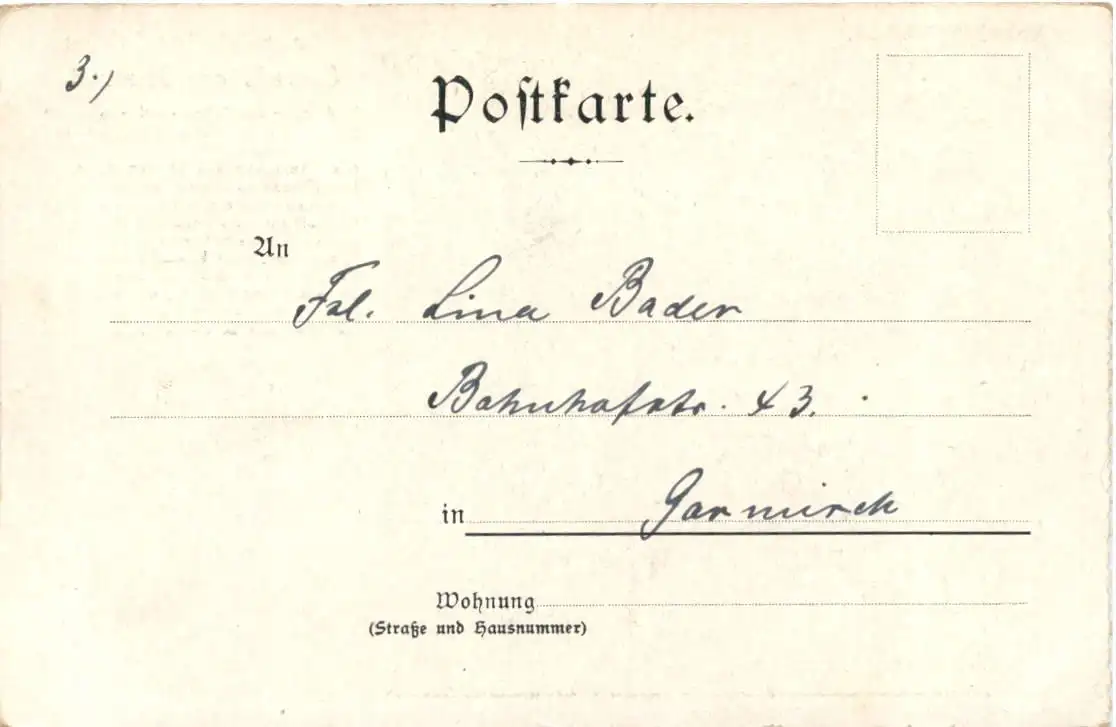 3.)
Postkarte.
An
Frl. Lina Bader
Bahnhofstr. 43.
in Garmisch
Wohnung
(Straße und Hausnummer)